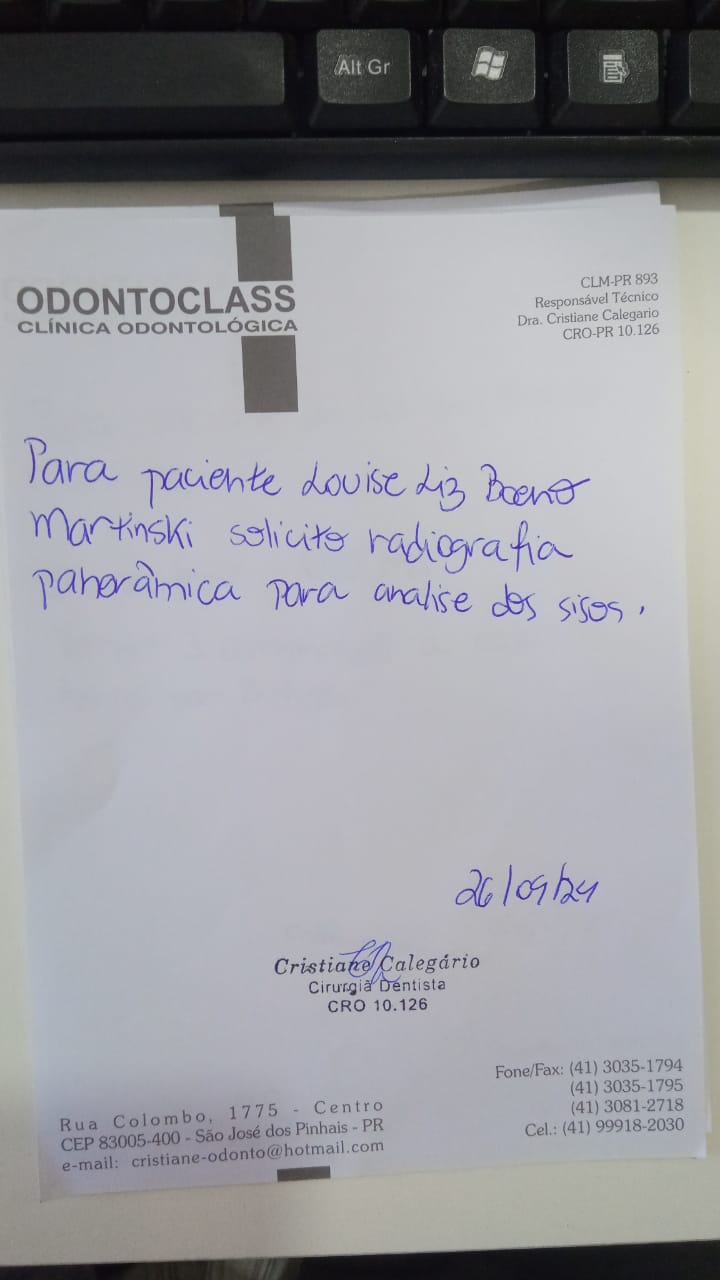 Alt Gr
ODONTOCLASS
CLÍNICA ODONTOLÓGICA
CLM-PR 893
Responsável Técnico
Dra. Cristiane Calegario
CRO-PR 10.126
Para paciente Louise Liz Boeno
Martinski solicito radiografia
panorâmica para analise dos sisos.
26/09/24
Cristiane Calegário
Cirurgiã Dentista
CRO 10.126
Rua Colombo, 1775 - Centro
CEP 83005-400 - São José dos Pinhais - PR
e-mail: cristiane-odonto@hotmail.com
Fone/Fax: (41) 3035-1794
(41) 3035-1795
(41) 3081-2718
Cel.: (41) 99918-2030